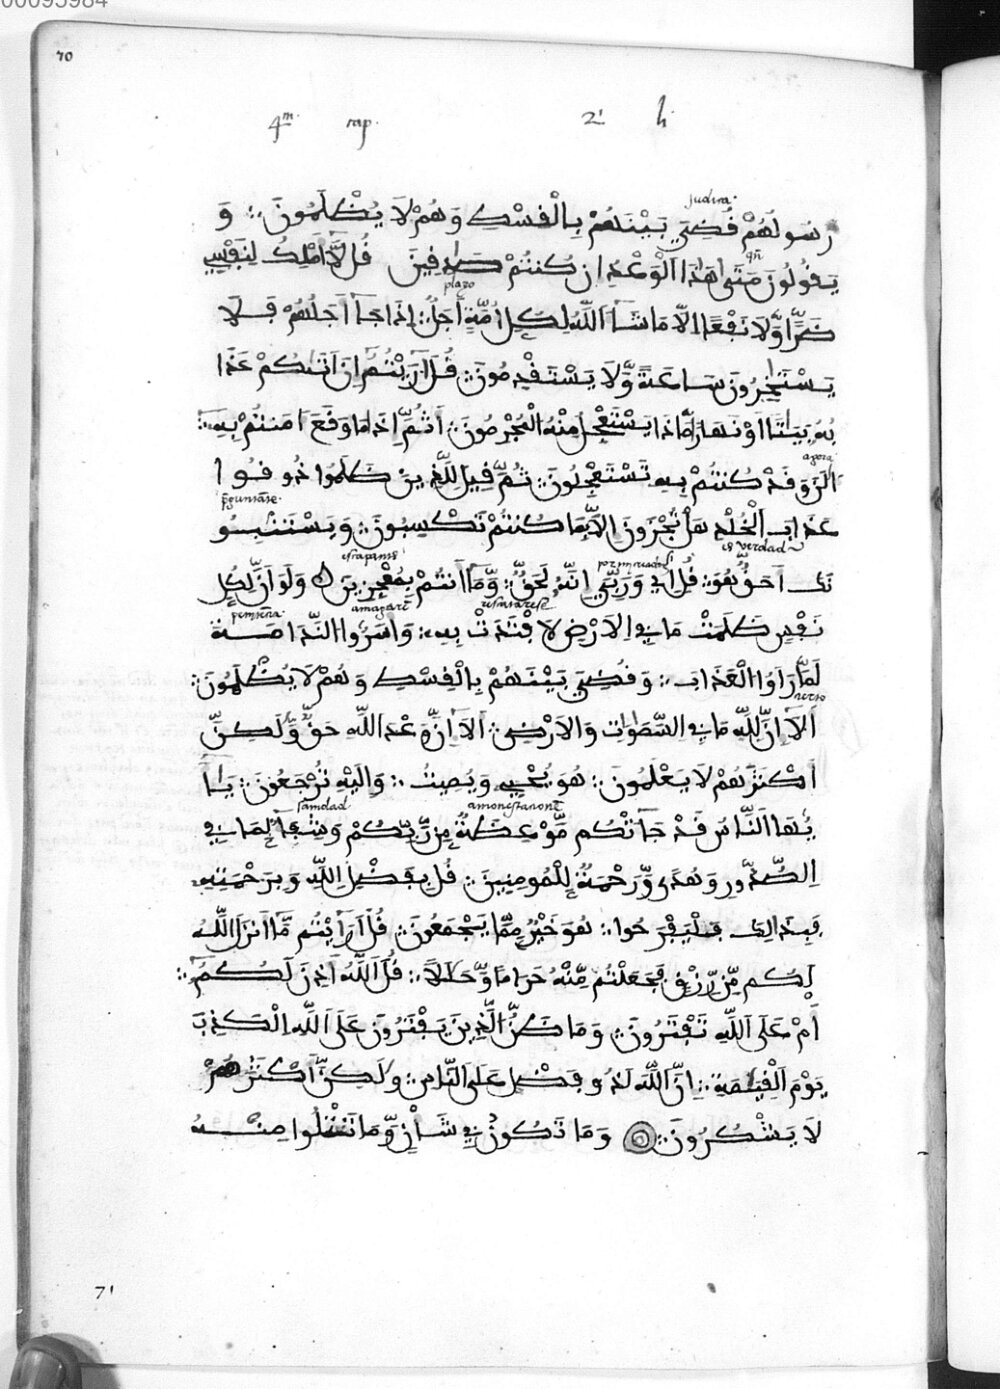 00095984
70
4m. rap. 2i h.
judira.
رسولهم قضى بينهم بالقسط وهم لا يظلمون ؞ و
qñ
يقولون متى هذا الوعد ان كنتم صدقين قل لا املك لنفسى
plazo
ضرا ولا نفعا الا ما شا الله لكل امة اجل ؞ اذا جا اجلهم فلا
يستخرون ساعة ولا يستقدمون ؞ قل اريتم ان اتىكم عذا
به بيتا او نهارا ماذا يستعجل منه المجرمون ؞ اثم اذا ما وقع امنتم به ؞
agora
الن وقد كنتم به تستعجلون ؞ ثم قيل للذين ظلموا ذوقوا
عذاب الخلد هل تجزون الا بما كنتم تكسبون ؞ ويستنبـو
es verdad
نك احق هو ؞ قل اى وربى انه لحق ؞ وما انتم بمعجزين ولو ان لكل
amagarẽ
نفس ظلمت ما فى الارض لافتدت به ؞ واسروا الندامــة
لما راوا العذاب ؞ وقضى بينهم بالقسط وهم لا يظلمون ؞
الا ان لله ما فى السموت والارض ؞ الا ان وعد الله حق ولكن
اكثرهم لا يعلمون ؞ هو يحى ويميت ؞ واليه ترجعون ؞ يا
amonestanonẽ
يها الناس قد جاتكم موعظة من ربكم وشفا لما فى
الصدور وهدى ورحمة للمومنين ؞ قل بفضل الله وبرحمته
فبذالك فليفرحوا ؞ هو خير مما يجمعون ؞ قل ارايتم ما انزل الله
لكم من رزق فجعلتم منه حراما وحلالا ؞ قل الله اذن لكم ؞
ام على الله تفترون ؞ وما ظن الذين يفترون على الله الكذب
يوم القيمة ؞ ان الله لذو فضل على الناس ؞ ولكن اكثرهم
لا يشكرون ؞ وما تكون فى شان وما تتلوا منــه
71